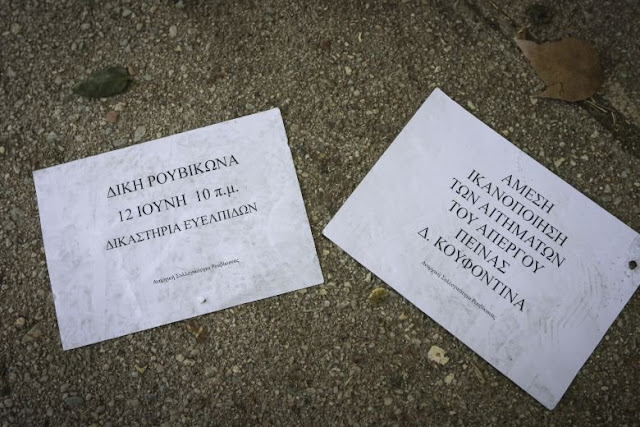 ΔΙΚΗ ΡΟΥΒΙΚΩΝΑ
12 ΙΟΥΝΗ 10 π.μ.
ΔΙΚΑΣΤΗΡΙΑ ΕΥΕΛΠΙΔΩΝ
Αναρχική Συλλογικότητα Ρουβίκωνας
ΑΜΕΣΗ
ΙΚΑΝΟΠΟΙΗΣΗ
ΤΩΝ ΑΙΤΗΜΑΤΩΝ
ΤΟΥ ΑΠΕΡΓΟΥ
ΠΕΙΝΑΣ
Δ. ΚΟΥΦΟΝΤΙΝΑ
Αναρχική Συλλογικότητα Ρουβίκωνας